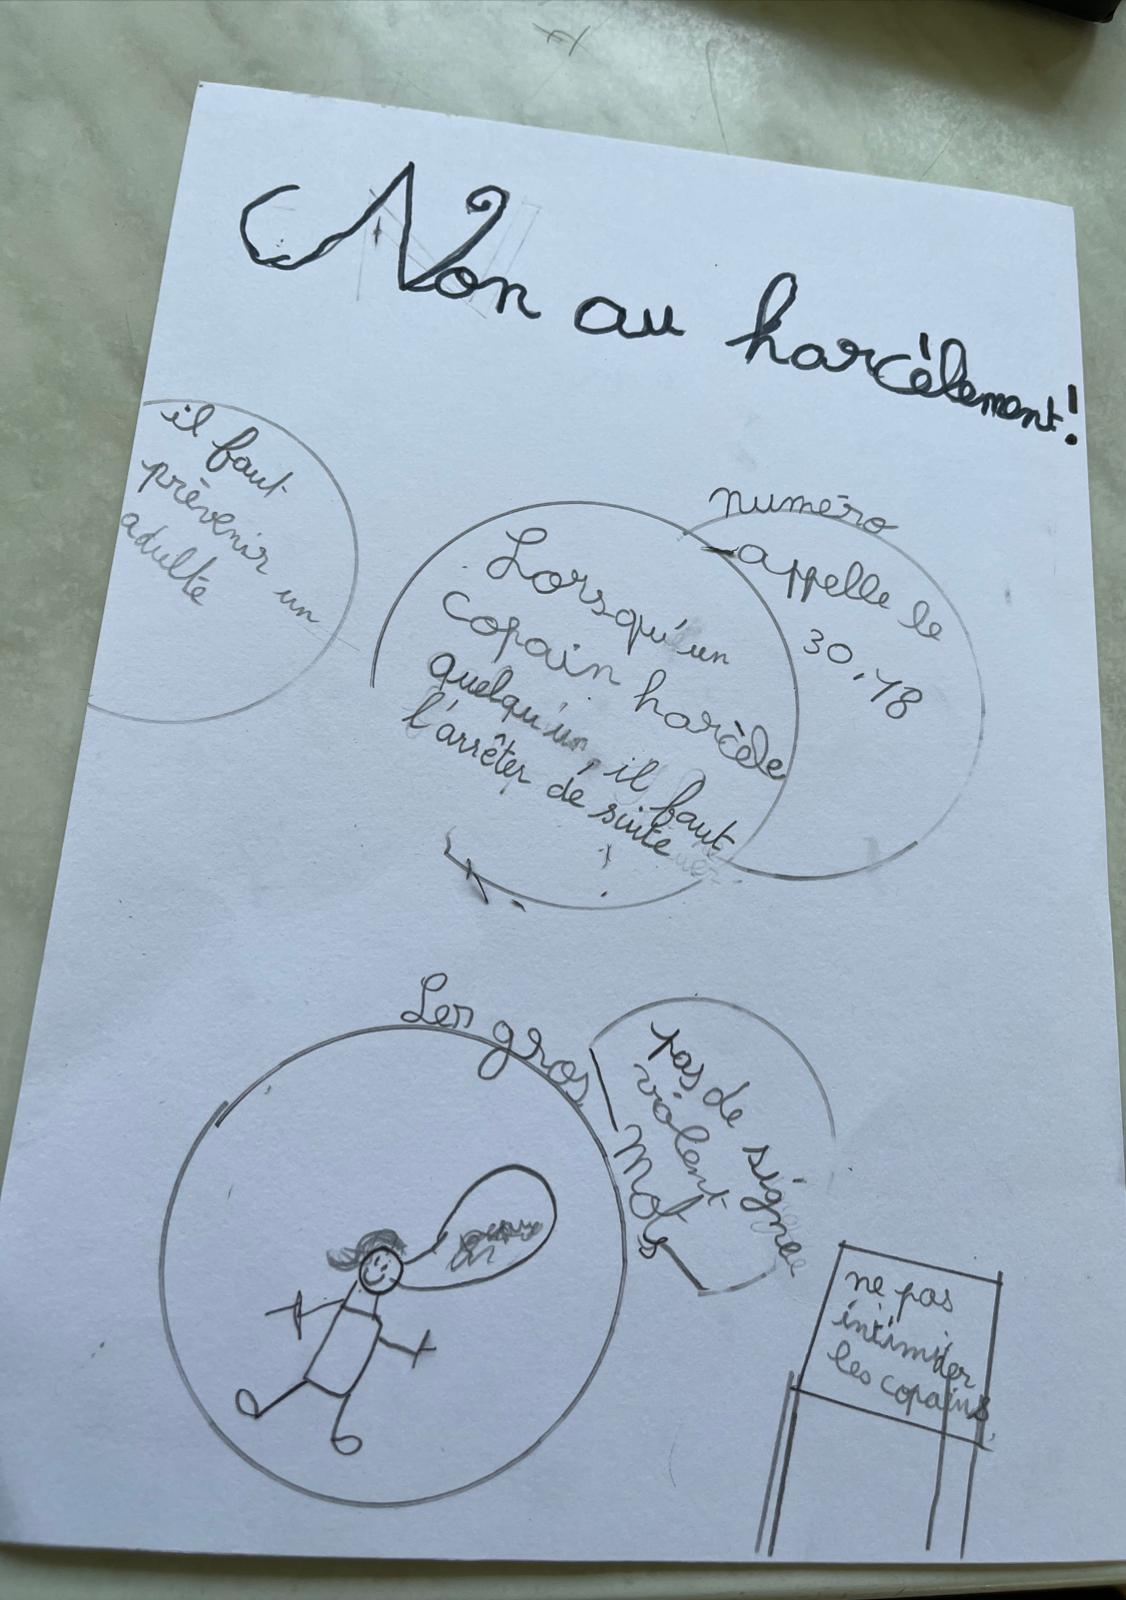 Non au harcèlement!
il faut
prévenir un
adulte
Lorsqu'un
copain harcèle
quelqu'un, il faut
l'arrêter de suite
numéro
appelle le
30.18
Les gros
Mots
pas de signe
violent
ne pas
intimider
les copains